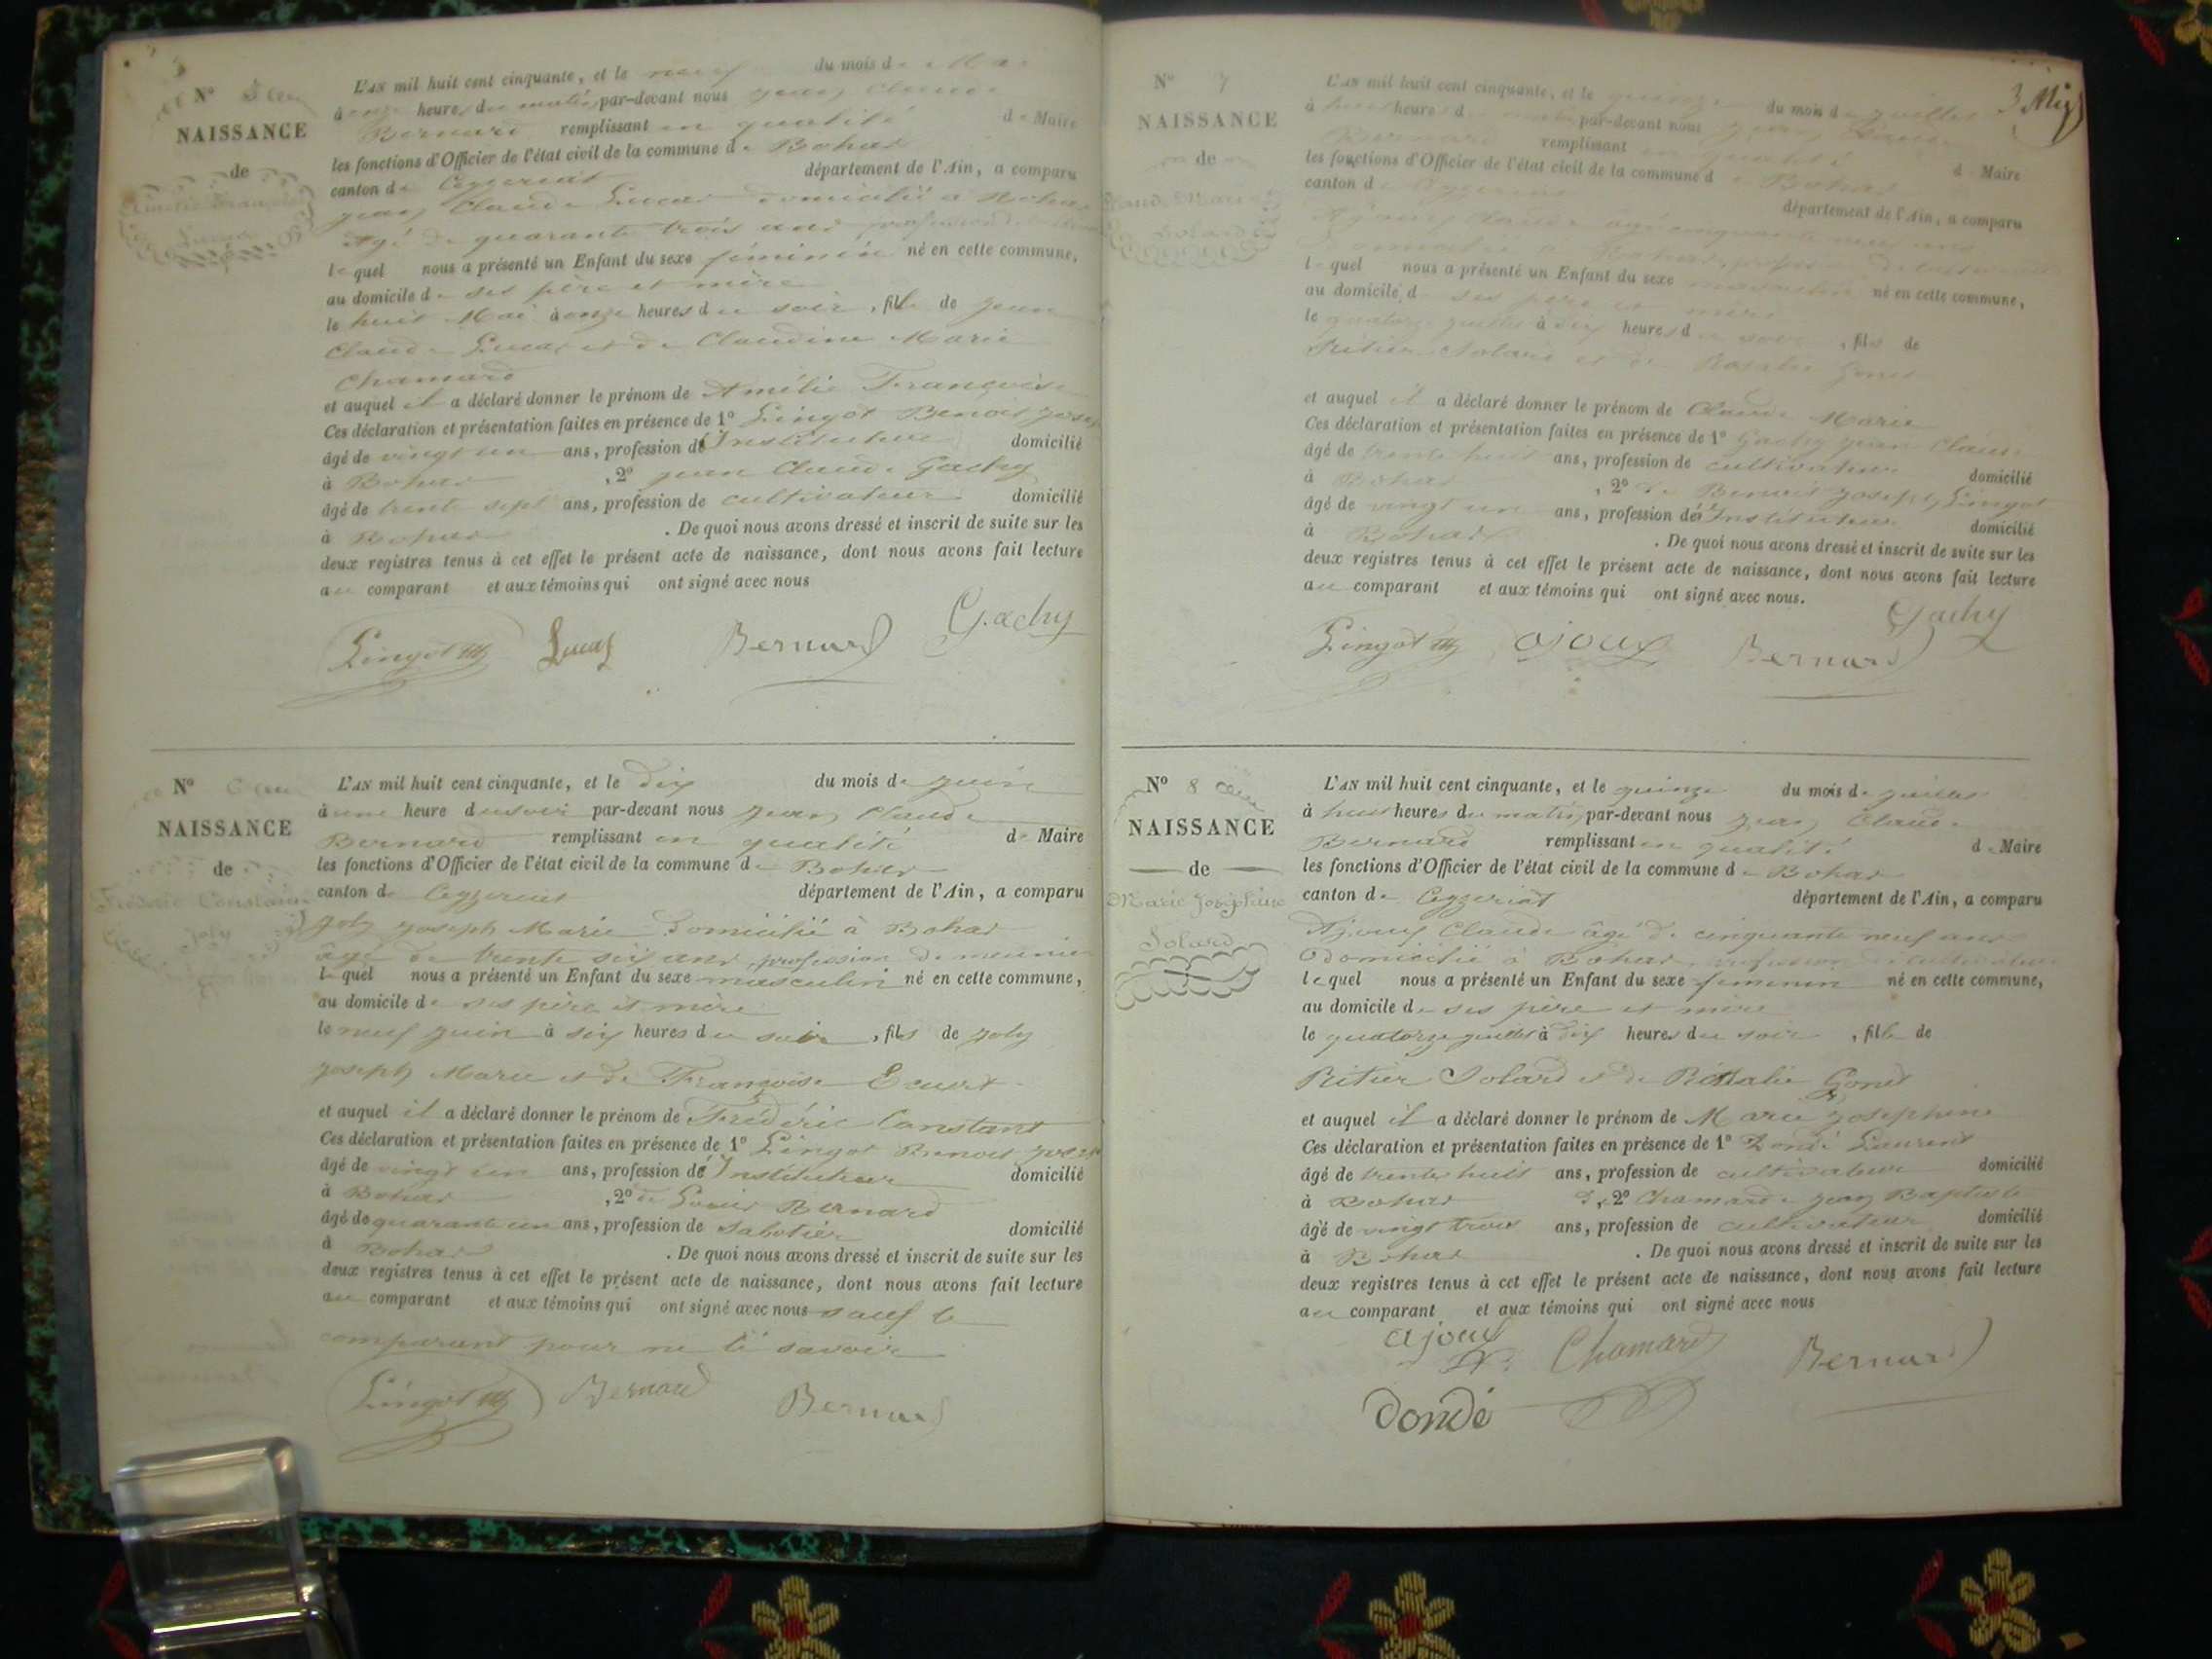 N° 5
NAISSANCE
de
Amélie Françoise
Lucas
L'AN mil huit cent cinquante, et le neuf du mois de Mai
à onze heures du matin par-devant nous jean Claude
Bernard remplissant en qualité de Maire
les fonctions d'Officier de l'état civil de la commune de Bohas
canton de Ceyzeriat département de l'Ain, a comparu
jean Claude Lucas domicilié à Bohas
âgé de quarante trois ans profession de
lequel nous a présenté un Enfant du sexe féminin né en cette commune,
au domicile de ses père et mère
le huit Mai à onze heures du soir, fille de jean
Claude Lucas et de Claudine Marie
Chamard
et auquel il a déclaré donner le prénom de Amélie Françoise
Ces déclaration et présentation faites en présence de 1° Lingot Benoit joseph
âgé de vingt un ans, profession d'Instituteur domicilié
à Bohas, 2° jean Claude Gachy
âgé de trente sept ans, profession de cultivateur domicilié
à Bohas. De quoi nous avons dressé et inscrit de suite sur les
deux registres tenus à cet effet le présent acte de naissance, dont nous avons fait lecture
au comparant et aux témoins qui ont signé avec nous
Lingot Lucas Bernard Gachy
N° 6
NAISSANCE
de
Frédéric Constant
joly
L'AN mil huit cent cinquante, et le dix du mois de juin
à une heure du soir par-devant nous jean Claude
Bernard remplissant en qualité de Maire
les fonctions d'Officier de l'état civil de la commune de Bohas
canton de Ceyzeriat département de l'Ain, a comparu
joly joseph Marie domicilié à Bohas
âgé de trente six ans, profession de meunier
lequel nous a présenté un Enfant du sexe masculin né en cette commune,
au domicile de ses père et mère
le neuf juin à six heures du soir, fils de joly
joseph Marie et de Françoise
et auquel il a déclaré donner le prénom de Frédéric Constant
Ces déclaration et présentation faites en présence de 1° Lingot Benoit joseph
âgé de vingt un ans, profession d'Instituteur domicilié
à Bohas, 2° de Bernard
âgé de quarante un ans, profession de Sabotier domicilié
à Bohas. De quoi nous avons dressé et inscrit de suite sur les
deux registres tenus à cet effet le présent acte de naissance, dont nous avons fait lecture
au comparant et aux témoins qui ont signé avec nous sauf le
comparant pour ne le savoir
Lingot Bernard Bernard
3
N° 7
NAISSANCE
de
Claude Marie
Solard
L'AN mil huit cent cinquante, et le quinze du mois de juillet
à huit heures du matin par-devant nous jean Claude
Bernard remplissant en qualité de Maire
les fonctions d'Officier de l'état civil de la commune de Bohas
canton de Ceyzeriat département de l'Ain, a comparu
Ajoux Claude âgé cinquante neuf ans
domicilié à Bohas, profession de cultivateur
lequel nous a présenté un Enfant du sexe masculin né en cette commune,
au domicile de ses père et mère
le quatorze juillet à dix heures du soir, fils de
Pitier Solard et de Rosalie Gonet
et auquel il a déclaré donner le prénom de Claude Marie
Ces déclaration et présentation faites en présence de 1° Gachy jean Claude
âgé de trente huit ans, profession de cultivateur domicilié
à Bohas, 2° de Benoit joseph Lingot
âgé de vingt un ans, profession d'Instituteur domicilié
à Bohas. De quoi nous avons dressé et inscrit de suite sur les
deux registres tenus à cet effet le présent acte de naissance, dont nous avons fait lecture
au comparant et aux témoins qui ont signé avec nous.
Lingot ajoux Bernard Gachy
N° 8
NAISSANCE
de
Marie joséphine
Solard
L'AN mil huit cent cinquante, et le quinze du mois de juillet
à huit heures du matin par-devant nous jean Claude
Bernard remplissant en qualité de Maire
les fonctions d'Officier de l'état civil de la commune de Bohas
canton de Ceyzeriat département de l'Ain, a comparu
Ajoux Claude âgé de cinquante neuf ans
domicilié à Bohas, profession de cultivateur
lequel nous a présenté un Enfant du sexe féminin né en cette commune,
au domicile de ses père et mère
le quatorze juillet à dix heures du soir, fille de
Pitier Solard et de Rosalie Gonet
et auquel il a déclaré donner le prénom de Marie josephine
Ces déclaration et présentation faites en présence de 1° Dondé Laurent
âgé de trente huit ans, profession de cultivateur domicilié
à Bohas, 2° Chamard jean Baptiste
âgé de vingt trois ans, profession de cultivateur domicilié
à Bohas. De quoi nous avons dressé et inscrit de suite sur les
deux registres tenus à cet effet le présent acte de naissance, dont nous avons fait lecture
au comparant et aux témoins qui ont signé avec nous
ajoux Chamard Bernard
dondé